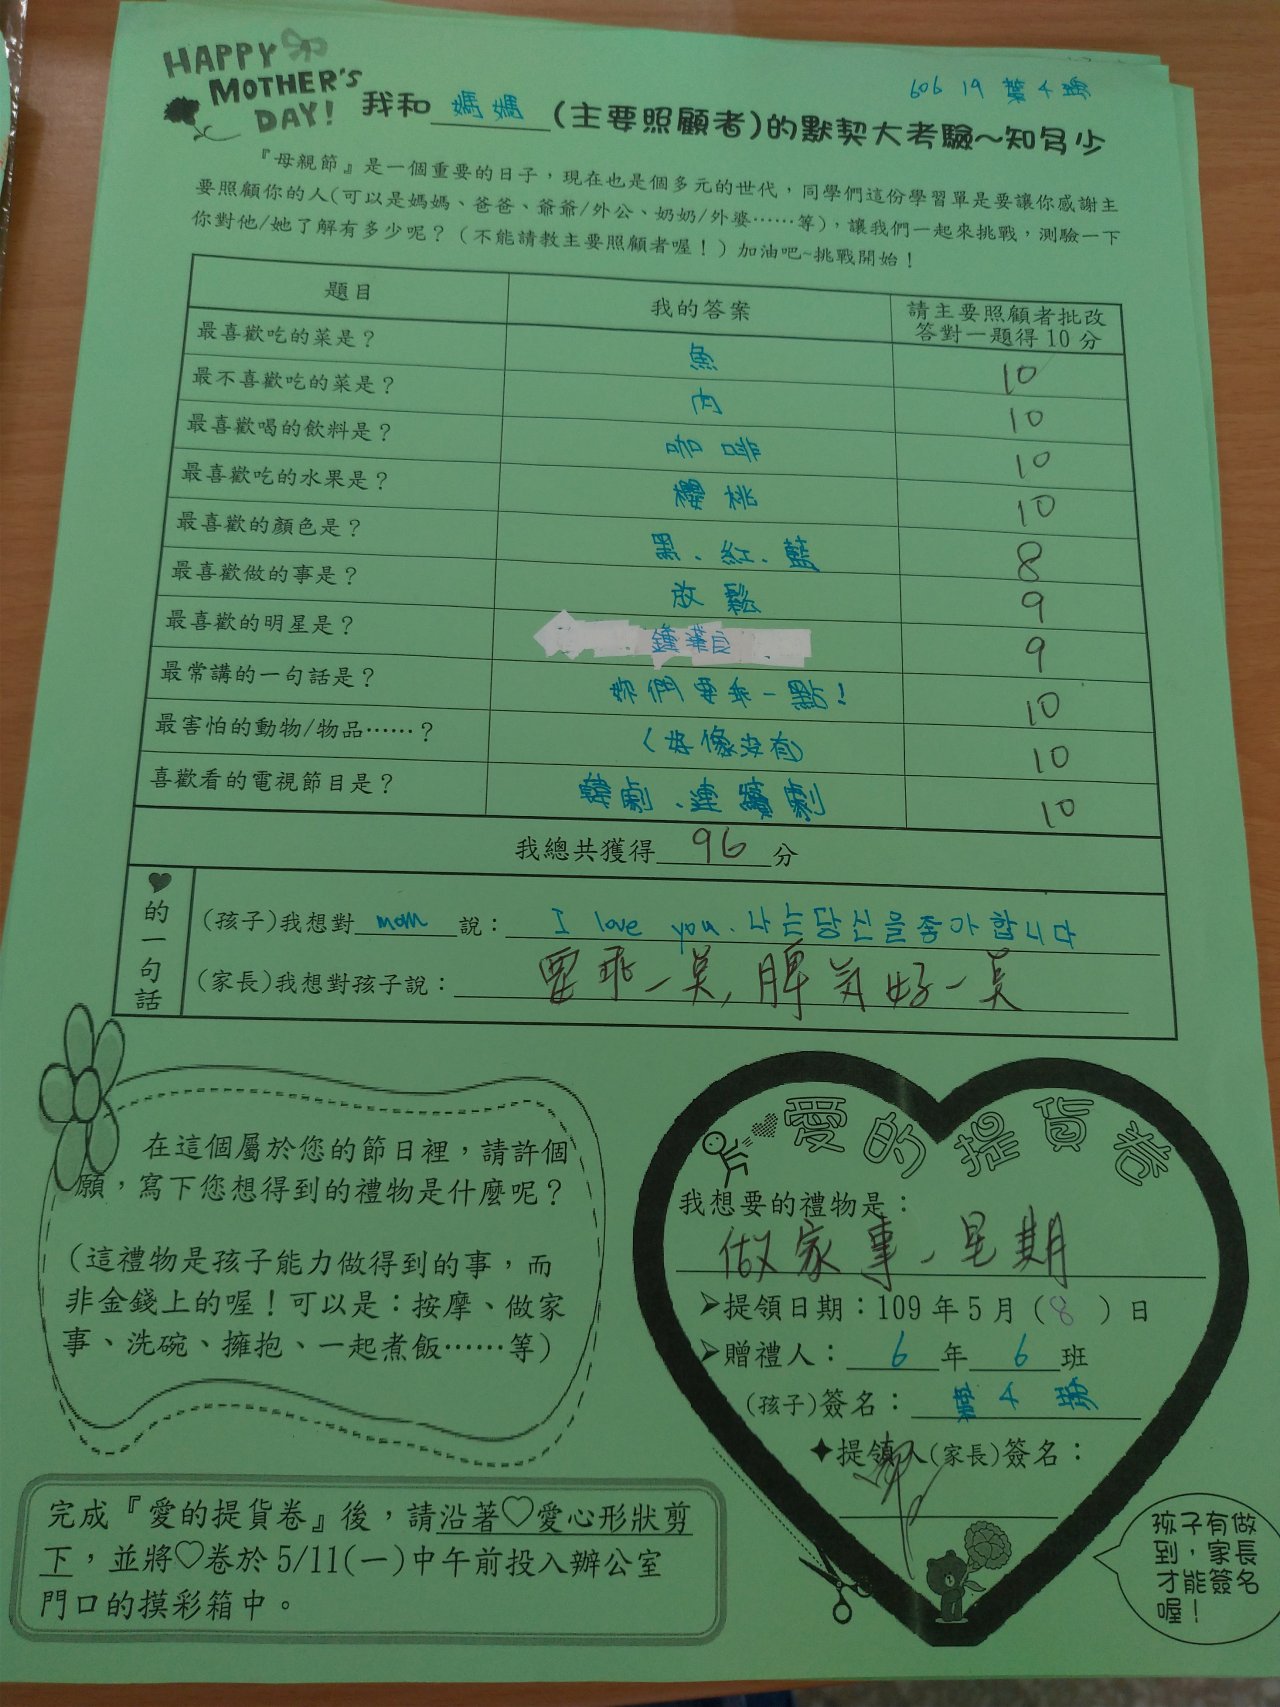 HAPPY
MOTHER'S
DAY!
606 19 葉
我和 媽媽 (主要照顧者)的默契大考驗~知多少
『母親節』是一個重要的日子，現在也是個多元的世代，同學們這份學習單是要讓你感謝主
要照顧你的人(可以是媽媽、爸爸、爺爺/外公、奶奶/外婆……等)，讓我們一起來挑戰，測驗一下
你對他/她了解有多少呢？（不能請教主要照顧者喔！）加油吧~挑戰開始！
題目 我的答案 請主要照顧者批改
答對一題得10分
最喜歡吃的菜是？ 魚 10
最不喜歡吃的菜是？ 肉 10
最喜歡喝的飲料是？ 咖啡 10
最喜歡吃的水果是？ 櫻桃 10
最喜歡的顏色是？ 黑.紅.藍 8
最喜歡做的事是？ 放鬆 9
最喜歡的明星是？ 9
最常講的一句話是？ 你們要乖一點！ 10
最害怕的動物/物品……？ (好像沒有) 10
喜歡看的電視節目是？ 韓劇.連續劇 10
我總共獲得 96 分
的一句話
(孩子)我想對 mom 說： I love you. 나는당신을좋아합니다
(家長)我想對孩子說： 要乖一點,脾氣好一點
在這個屬於您的節日裡，請許個
願，寫下您想得到的禮物是什麼呢？
（這禮物是孩子能力做得到的事，而
非金錢上的喔！可以是：按摩、做家
事、洗碗、擁抱、一起煮飯……等）
完成『愛的提貨卷』後，請沿著♡愛心形狀剪
下，並將♡卷於5/11(一)中午前投入辦公室
門口的摸彩箱中。
愛的提貨卷
我想要的禮物是：
做家事一星期
➢提領日期：109年5月（8）日
➢贈禮人： 6 年 6 班
(孩子)簽名： 葉
✦提領人(家長)簽名：
孩子有做
到，家長
才能簽名
喔！